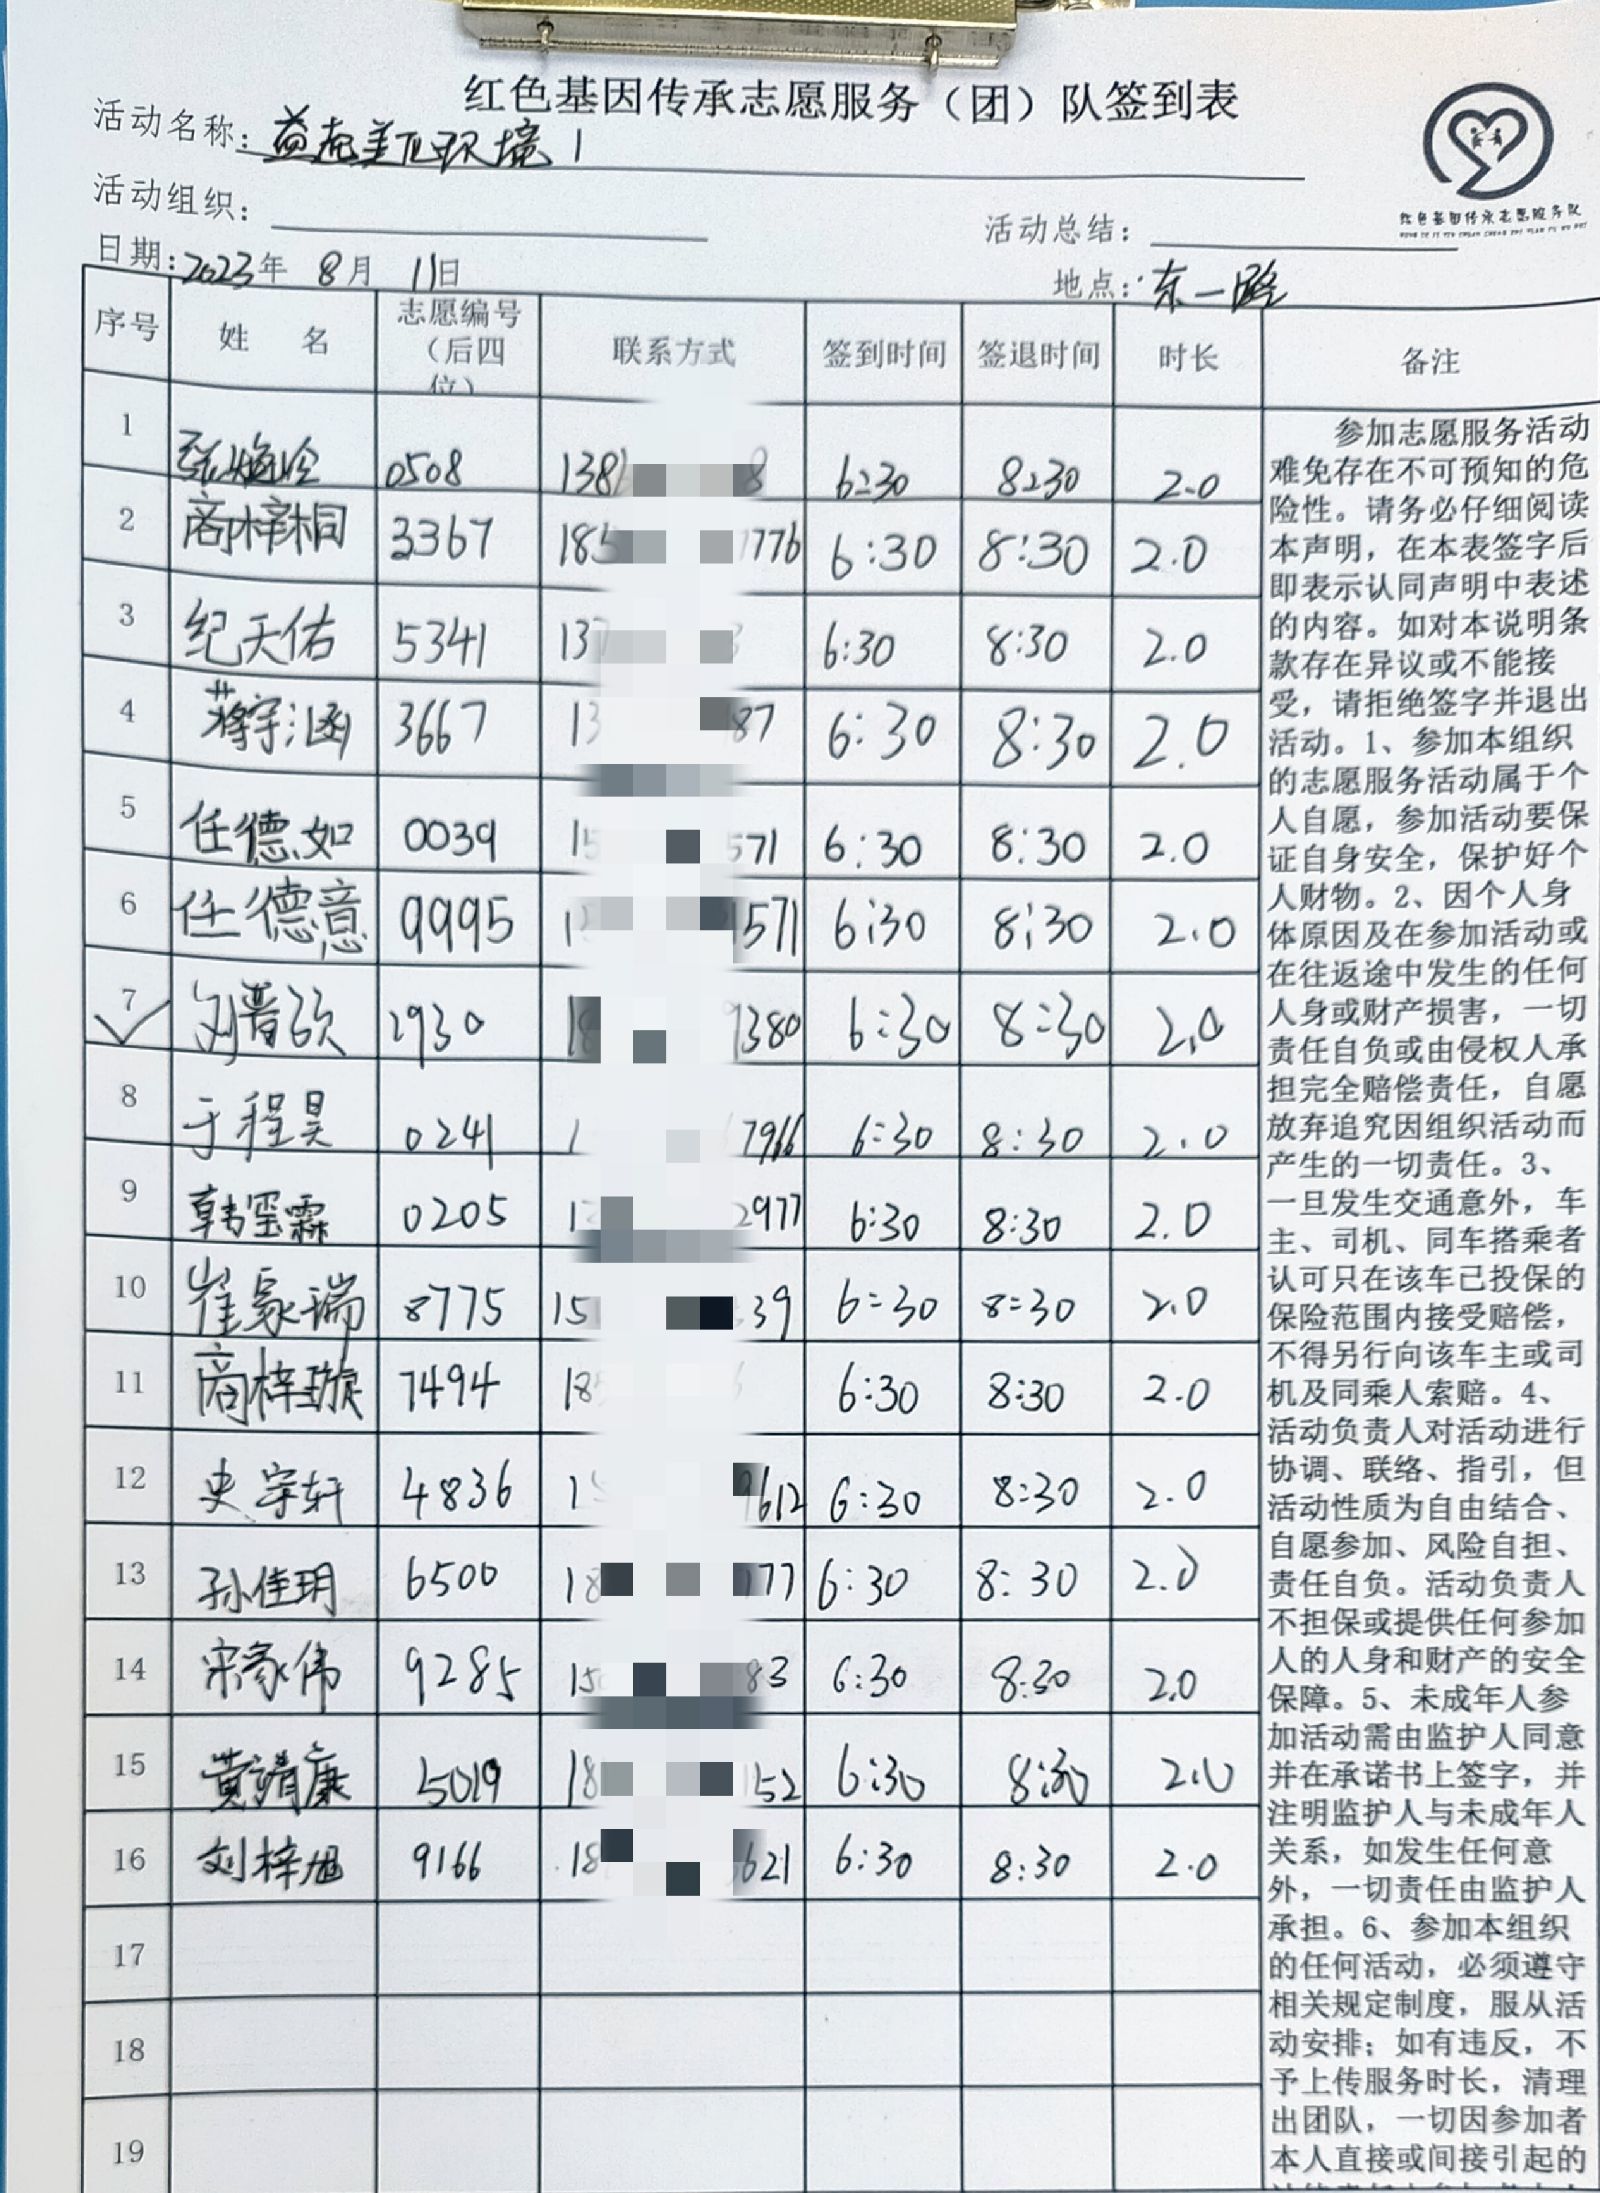 红色基因传承志愿服务（团）队签到表
活动名称：益起美化环境1
红色基因传承志愿服务队
活动组织：
活动总结：
日期：2023年 8月 11日
地点：东一路
序号 姓 名 志愿编号（后四位） 联系方式 签到时间 签退时间 时长 备注
1 0508 138 8 6:30 8:30 2.0
2 商梓桐 3367 185 1776 6:30 8:30 2.0
3 纪天佑 5341 137 6:30 8:30 2.0
4 蒋宇涵 3667 13 87 6:30 8:30 2.0
5 任德如 0039 15 571 6:30 8:30 2.0
6 任德意 9995 1 1571 6:30 8:30 2.0
7 刘晋硕 2930 18 9380 6:30 8:30 2.0
8 于程昊 0241 1 7966 6:30 8:30 2.0
9 韩玺霖 0205 1 2977 6:30 8:30 2.0
10 崔家瑞 8775 15 39 6:30 8:30 2.0
11 商梓璇 7494 18 6:30 8:30 2.0
12 史宇轩 4836 1 9612 6:30 8:30 2.0
13 孙佳玥 6500 18 177 6:30 8:30 2.0
14 宋家伟 9285 15 83 6:30 8:30 2.0
15 黄靖康 5019 18 152 6:30 8:30 2.0
16 刘梓旭 9166 18 621 6:30 8:30 2.0
17
18
19
参加志愿服务活动
难免存在不可预知的危
险性。请务必仔细阅读
本声明，在本表签字后
即表示认同声明中表述
的内容。如对本说明条
款存在异议或不能接
受，请拒绝签字并退出
活动。1、参加本组织
的志愿服务活动属于个
人自愿，参加活动要保
证自身安全，保护好个
人财物。2、因个人身
体原因及在参加活动或
在往返途中发生的任何
人身或财产损害，一切
责任自负或由侵权人承
担完全赔偿责任，自愿
放弃追究因组织活动而
产生的一切责任。3、
一旦发生交通意外，车
主、司机、同车搭乘者
认可只在该车已投保的
保险范围内接受赔偿，
不得另行向该车主或司
机及同乘人索赔。4、
活动负责人对活动进行
协调、联络、指引，但
活动性质为自由结合、
自愿参加、风险自担、
责任自负。活动负责人
不担保或提供任何参加
人的人身和财产的安全
保障。5、未成年人参
加活动需由监护人同意
并在承诺书上签字，并
注明监护人与未成年人
关系，如发生任何意
外，一切责任由监护人
承担。6、参加本组织
的任何活动，必须遵守
相关规定制度，服从活
动安排；如有违反，不
予上传服务时长，清理
出团队，一切因参加者
本人直接或间接引起的